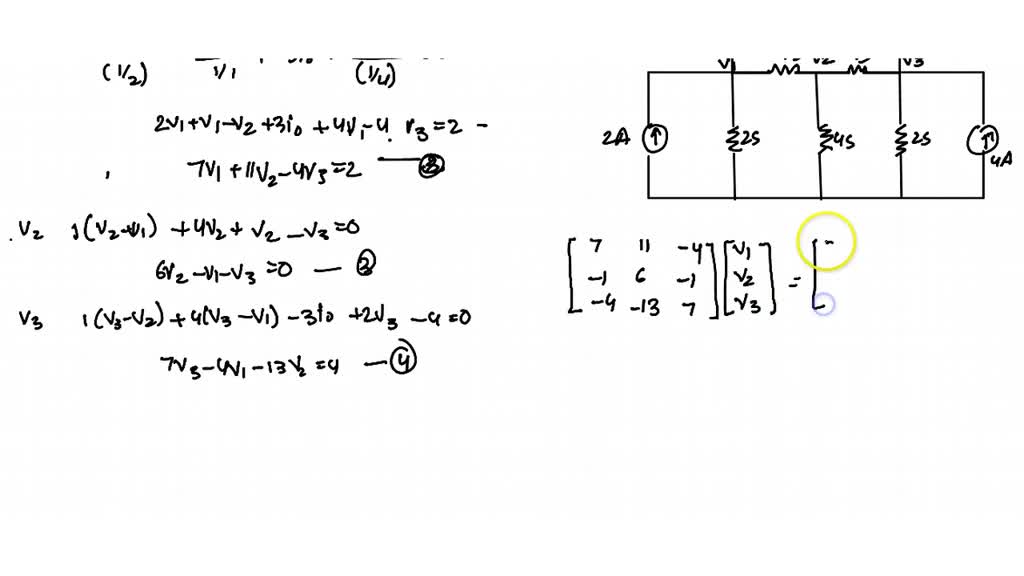 (1/2) 1/1 (1/4)
2V1+V1-V2+3i0+4V1-4V3=2 -
7V1+11V2-4V3=2 — ②
V2 1(V2-V1)+4V2+V2-V3=0
6V2-V1-V3=0 — ③
V3 1(V3-V2)+4(V3-V1)-3i0+2V3-4=0
7V3-4V1-13V2=4 — ④
V V2 V3
2A 2S 4S 2S
4A
7 11 -4 V1
-1 6 -1 V2 =
-4 -13 7 V3